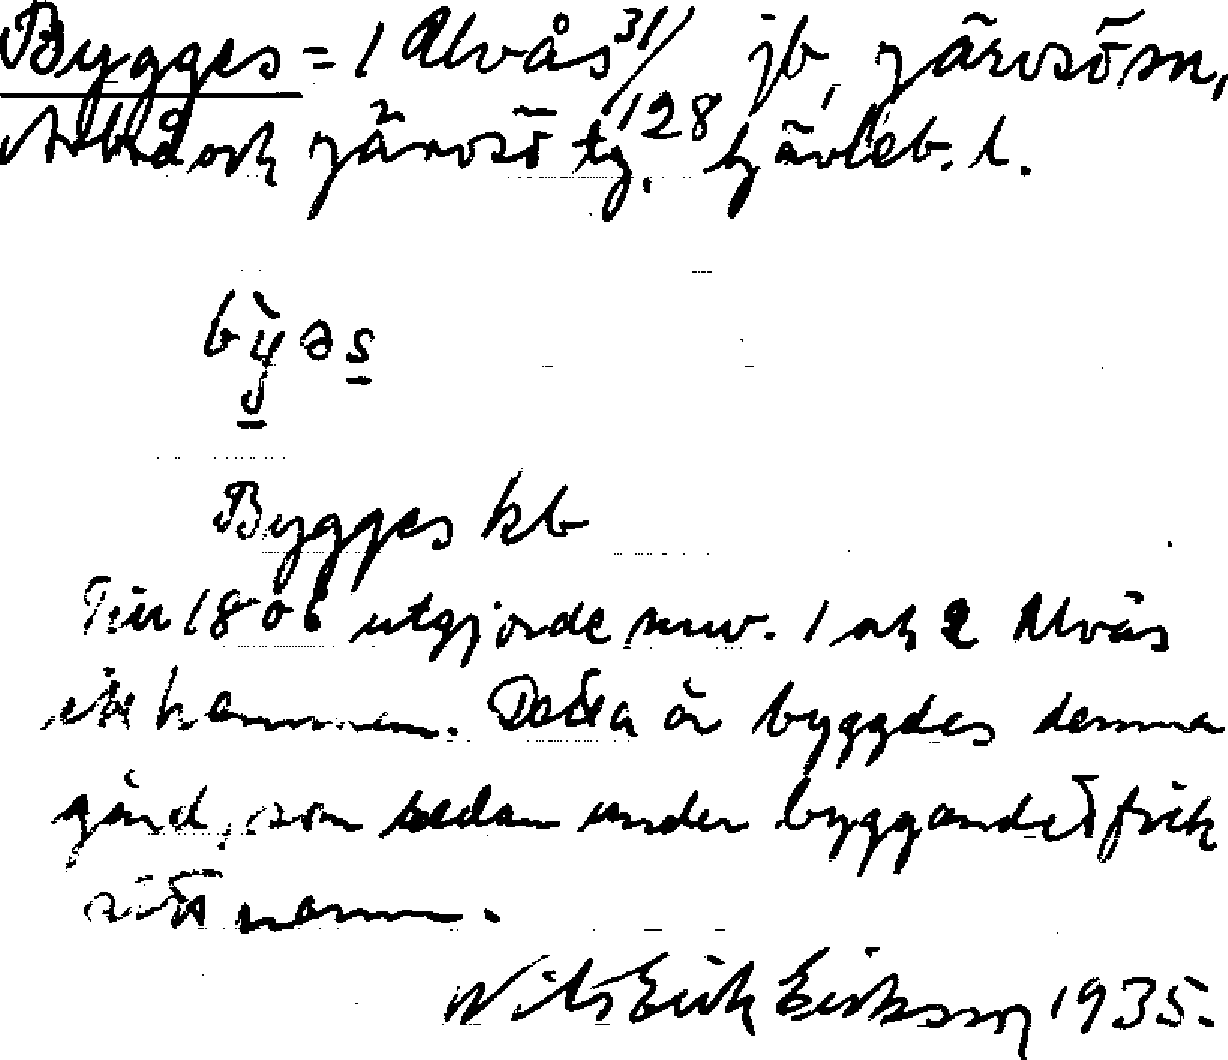 Bygges = 1 Alvås 31/128 jb, Järvsö sn,
Arbrå och Järvsö tg. Gävleb. l.
bỳəs
Bygges kb
Till 1806 utgjorde nuv. 1 och 2 Alvås
ett hemman. Detta år byggdes denna
gård, som redan under byggandet fick
sitt namn.
Nils Erik Eriksson 1935.